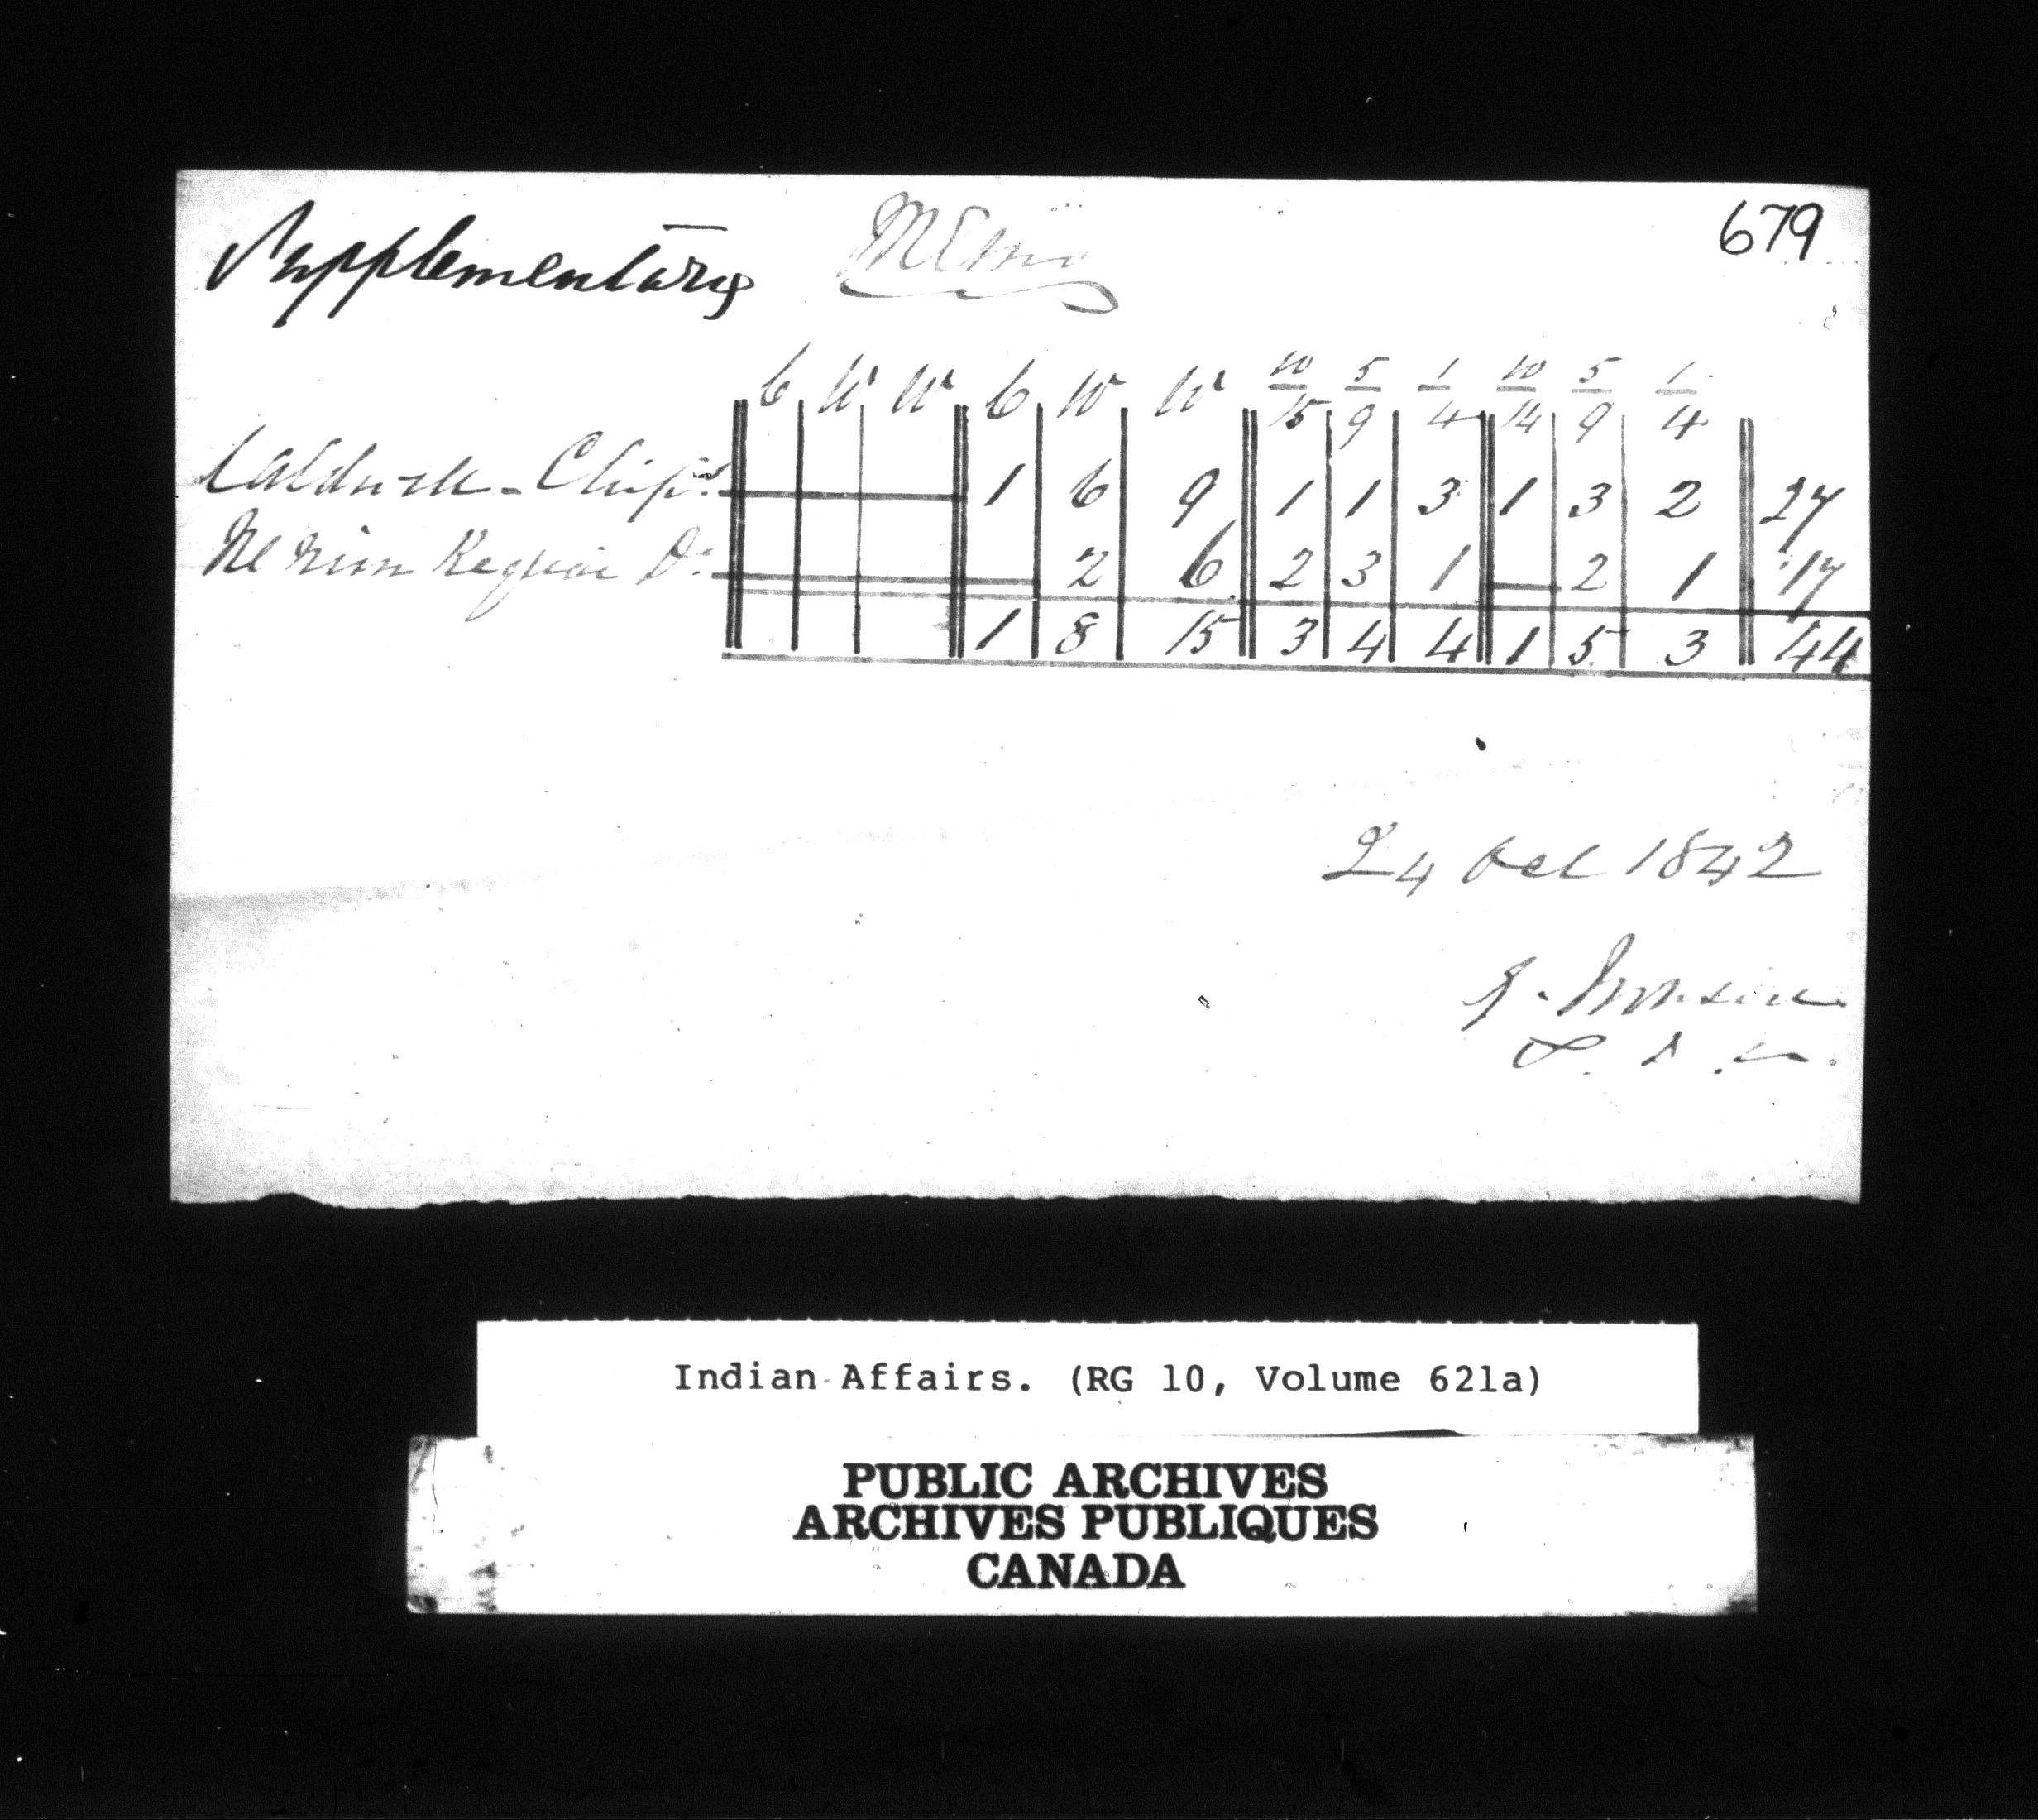 679
Supplementary Memo
C W W C W W 10/15 5/9 1/4 10/14 5/9 1/4
Caldwell - Chips. 1 6 9 1 1 3 1 3 2 27
Do. 2 6 2 3 1 2 1 17
1 8 15 3 4 4 1 5 3 44
24 Oct 1842
J.
Indian Affairs. (RG 10, Volume 621a)
PUBLIC ARCHIVES
ARCHIVES PUBLIQUES
CANADA